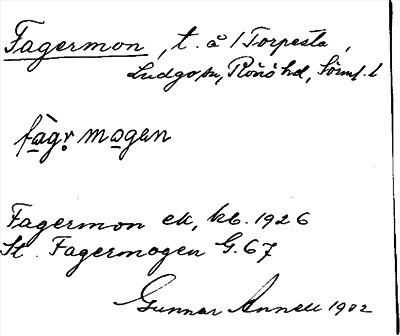 Fagermon, t. å 1 Torpesta,
Ludgo sn, Rönö hd, Sörml. l
fàgr̥ mogen
Fagermon ek, kb. 1926
St. Fagermogen G. 67
Gunnar Annell 1902